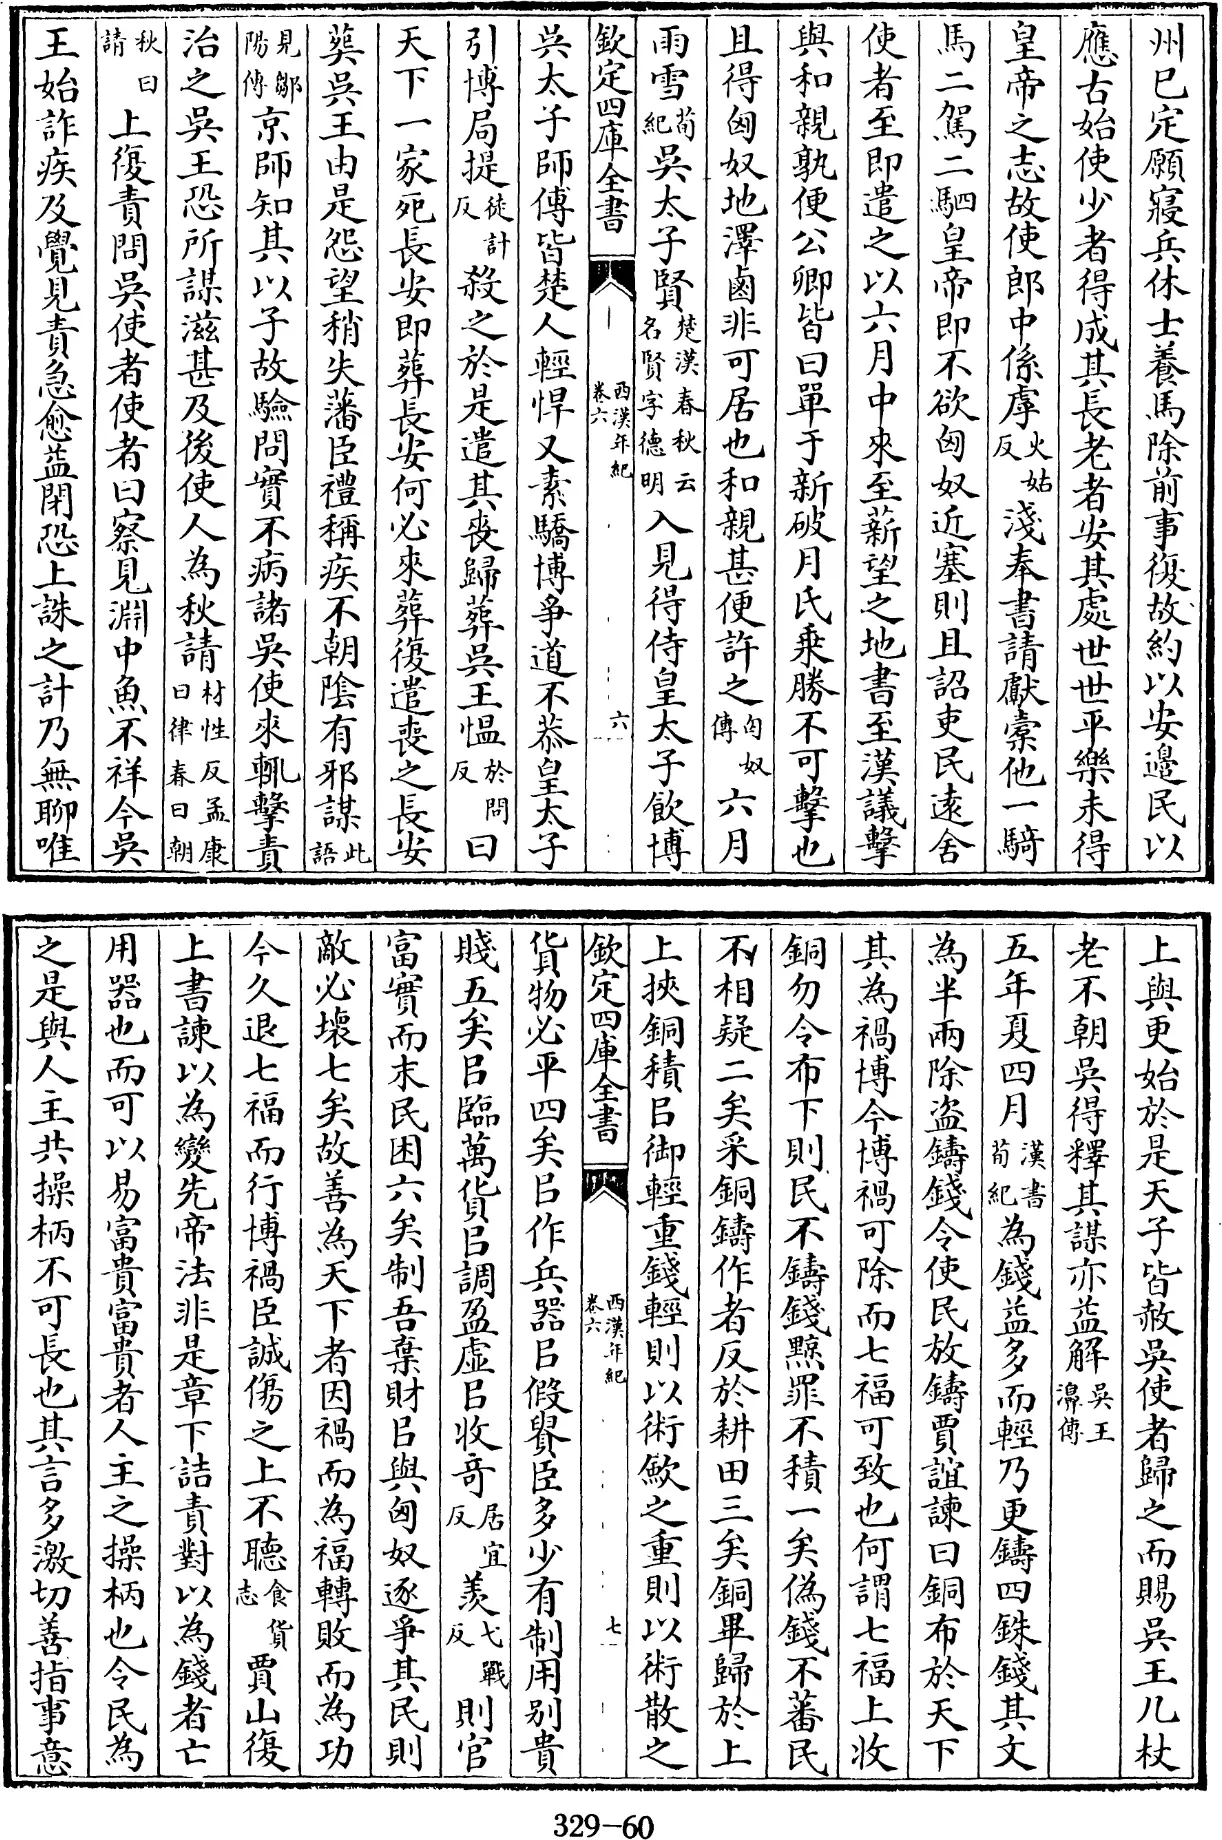 州已定願寢兵休士養馬除前事復故約以安邊民以
應古始使少者得成其長老者安其處世世平樂未得
皇帝之志故使郎中係虖火姑反淺奉書請獻橐他一騎
馬二駕二駟皇帝即不欲匈奴近塞則且詔吏民遠舍
使者至即遣之以六月中來至薪望之地書至漢議擊
與和親孰便公卿皆曰單于新破月氏乗勝不可擊也
且得匈奴地澤鹵非可居也和親甚便許之匈奴傳六月
雨雪荀紀吳太子賢楚漢春秋云名賢字德明入見得侍皇太子飲博
欽定四庫全書
西漢年紀卷六
六
吳太子師傅皆楚人輕悍又素驕博爭道不恭皇太子
引博局提徒計反殺之於是遣其喪歸葬吳王愠於問反曰
天下一家死長安即葬長安何必來葬復遣喪之長安
葬吳王由是怨望稍失藩臣禮稱疾不朝陰有邪謀此語
見鄒陽傳京師知其以子故驗問實不病諸吳使來輒擊責
治之吳王恐所謀滋甚及後使人為秋請材性反孟康曰律春曰朝
秋曰請上復責問吳使者使者曰察見淵中魚不祥今吳
王始詐疾及覺見責急愈益閉恐上誅之計乃無聊唯
上與更始於是天子皆赦吳使者歸之而賜吳王几杖
老不朝吳得釋其謀亦益解吳王濞傳
五年夏四月漢書荀紀為錢益多而輕乃更鑄四銖錢其文
為半兩除盗鑄錢令使民放鑄賈誼諫曰銅布於天下
其為禍博今博禍可除而七福可致也何謂七福上收
銅勿令布下則民不鑄錢黥罪不積一矣偽錢不蕃民
不相疑二矣采銅鑄作者反於耕田三矣銅畢歸於上
上挾銅積㠯御輕重錢輕則以術歛之重則以術散之
欽定四庫全書
西漢年紀卷六
七
貨物必平四矣㠯作兵器㠯假貴臣多少有制用别貴
賤五矣㠯臨萬貨㠯調盈虚㠯收竒居宜反羡弋戰反則官
富實而末民困六矣制吾棄財㠯與匈奴逐爭其民則
敵必壞七矣故善為天下者因禍而為福轉敗而為功
今久退七福而行博禍臣誠傷之上不聽食貨志賈山復
上書諫以為變先帝法非是章下詰責對以為錢者亡
用器也而可以易富貴富貴者人主之操柄也令民為
之是與人主共操柄不可長也其言多激切善指事意
329-60